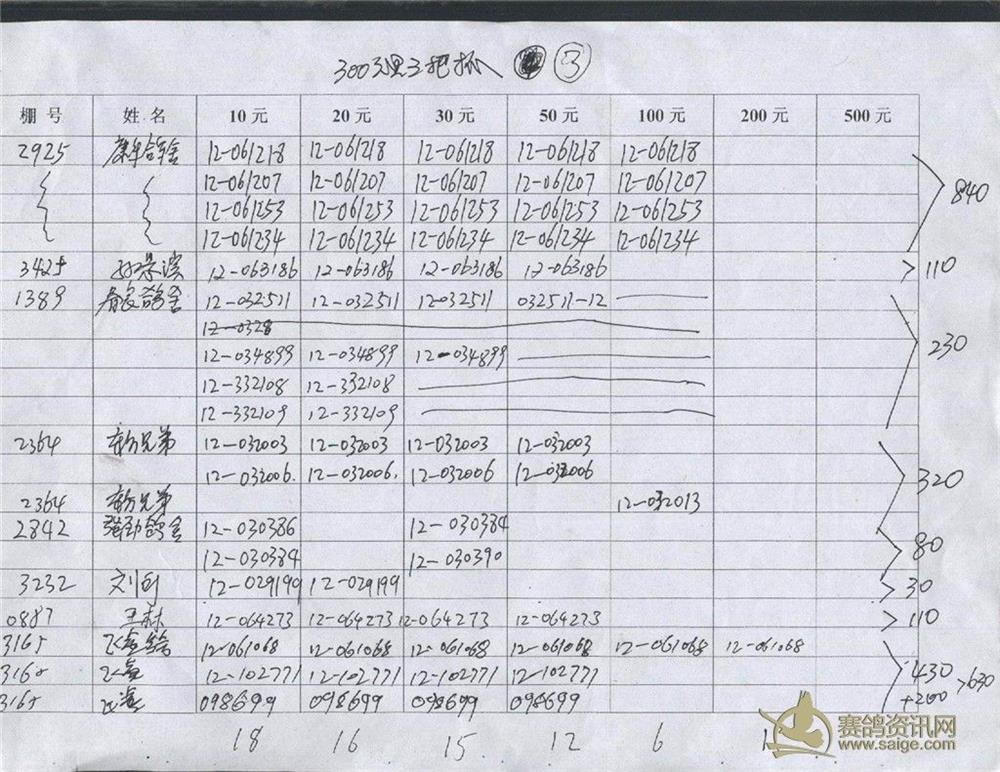 300公里三把抓 ③
棚号 姓名 10元 20元 30元 50元 100元 200元 500元
2925 12-061218 12-061218 12-061218 12-061218 12-061218
12-061207 12-061207 12-061207 12-061207 12-061207
12-061253 12-061253 12-061253 12-061253 12-061253 840
12-061234 12-061234 12-061234 12-061234 12-061234
3425 12-063186 12-063186 12-063186 12-063186 110
1389 12-032511 12-032511 12032511 032511-12
12-0328
12-034899 12-034899 12-034899 230
12-332108 12-332108
12-332109 12-332109
2364 兄弟 12-032003 12-032003 12-032003 12-032003
12-032006. 12-032006. 12-032006 12-032006 320
2364 兄弟 12-032013
2842 强劲鸽舍 12-030386 12-030384
12-030384 12-030390 80
3232 刘 12-029199 12-029199 30
0887 王林 12-064273 12-064273 12-064273 12-064273 110
3165 12-061068 12-061068 12-061068 12-061068 12-061068 12-061068
3165 12-102771 12-102771 12-102771 12-102771 430 630
3165 098699 098699 098699 098699 +200
18 16 15 12 6 1
赛鸽资讯网
www.saige.com